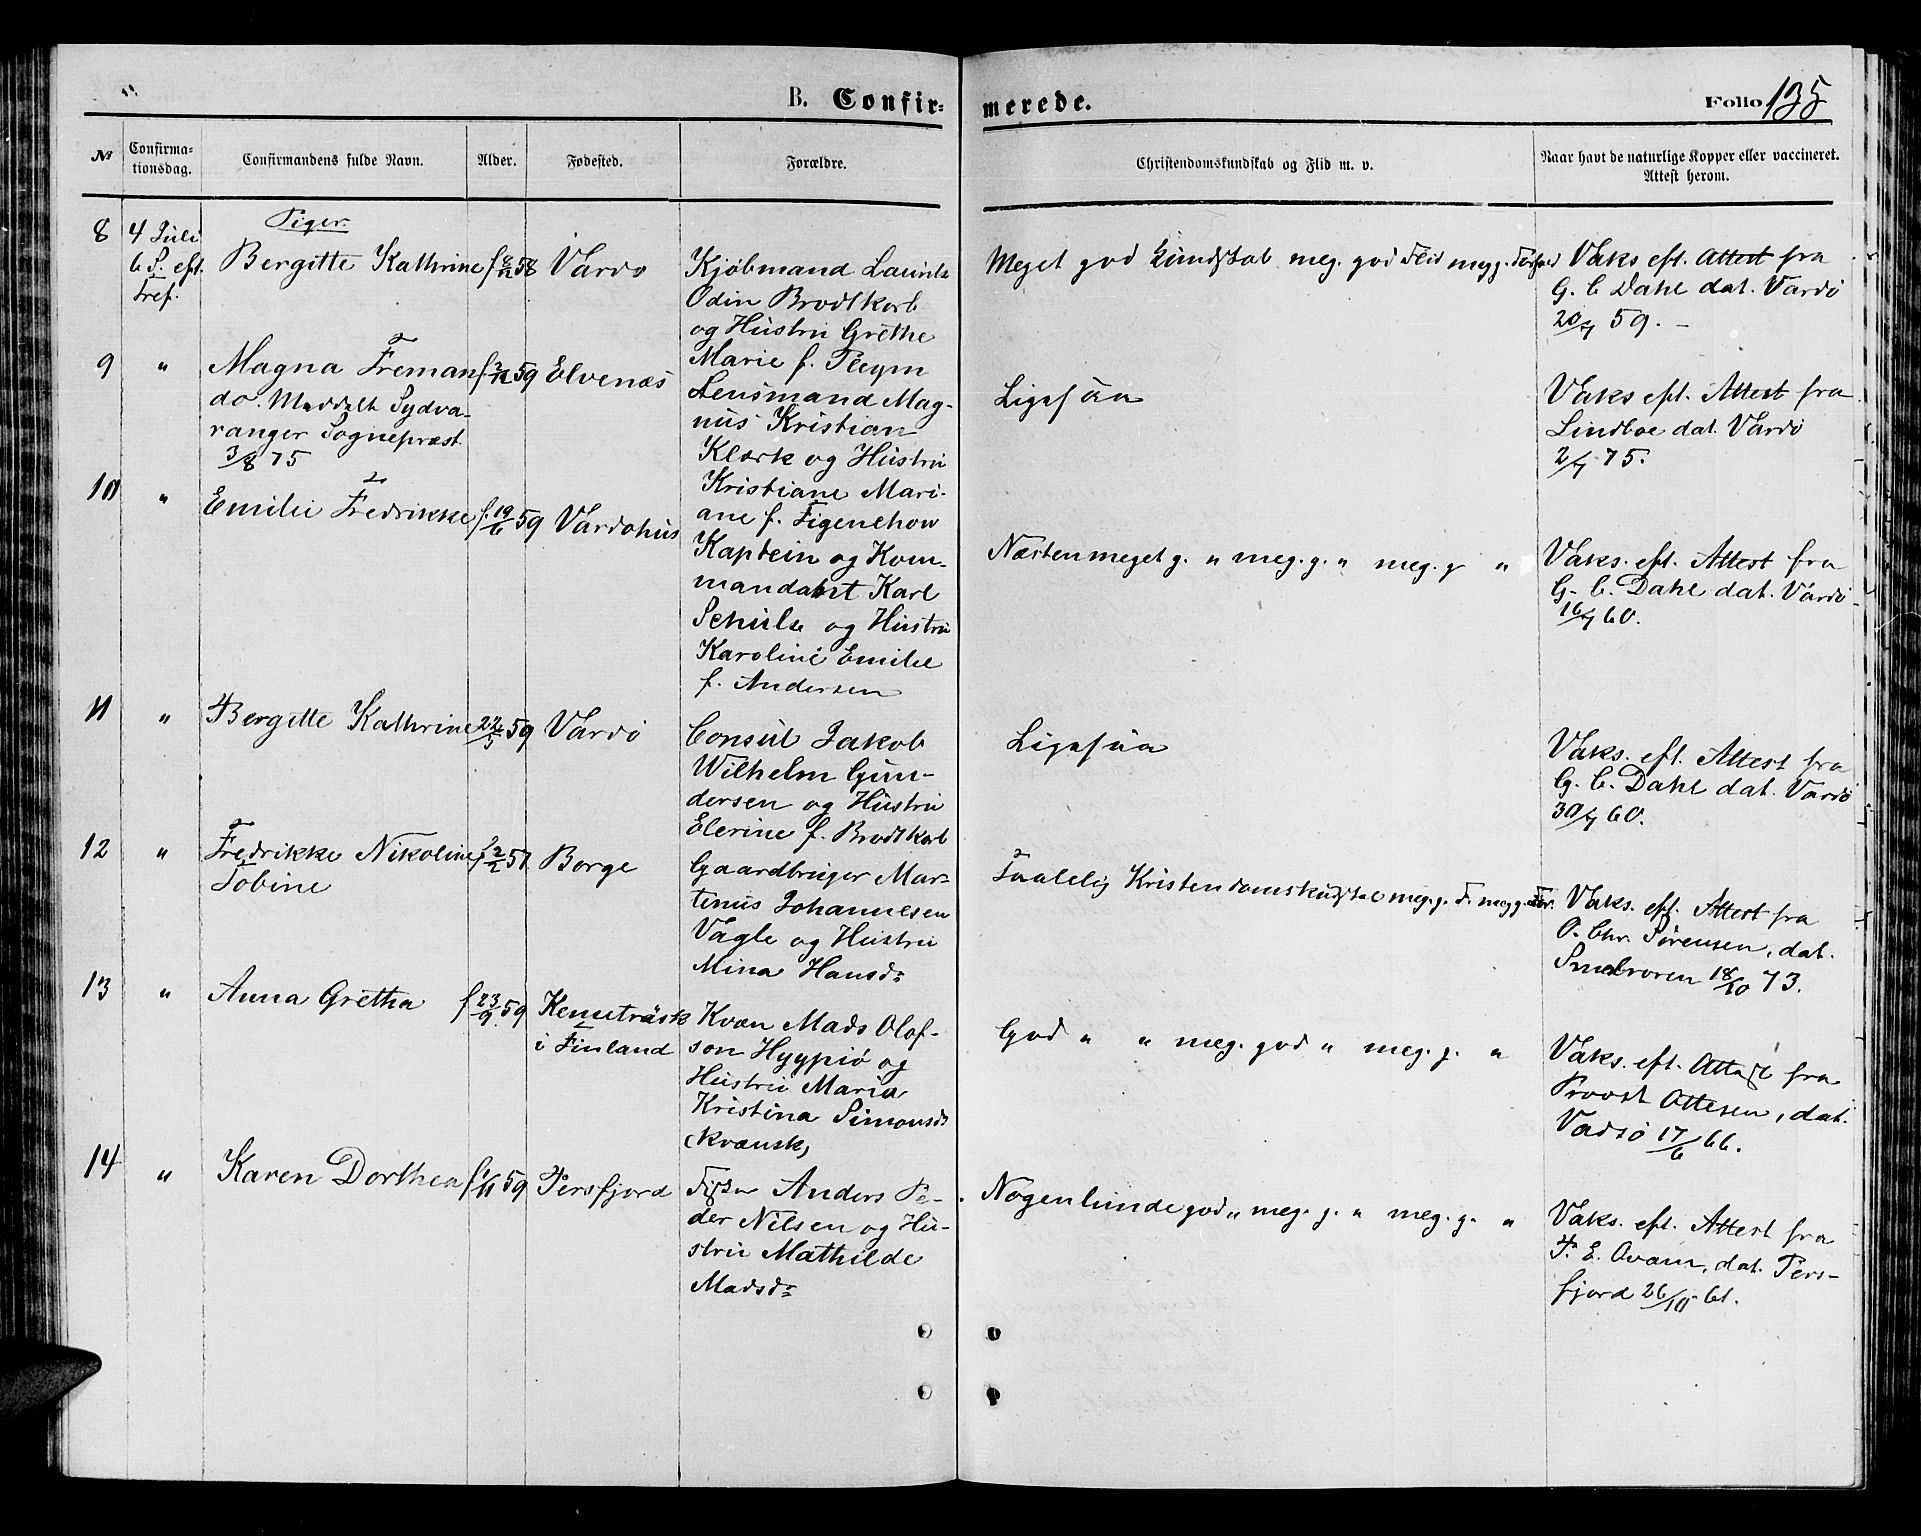 B. Confir-
merede.
Folio 135
№
Confirma-
tionsdag.
Confirmandens fulde Navn.
Alder.
Fødested.
Forældre.
Christendomskundskab og Flid m. v.
Naar havt de naturlige Kopper eller vaccineret.
Attest herom.
Piger
8
4 Juli
6 S. eft.
Tref.
Bergitte Kathrine
58
Vardø
Kjøbmand Laurits
Odin Brodtkorb
og Hustru Grethe
Marie f. Pleym
Meget god Kundskab meg. god Flid meg g. Forhold
Vaks eft. Attest fra
G. C Dahl dat. Vardö
20/7 59. –
9
"
Magna Freman
do. Meddelt Sydva-
ranger Sognepræst
3/8 75
59
Elvenæs
Lensmand Mag-
nus Kristian
Klerk og Hustru
Kristiane Mari-
ane f. Figenchow
Ligesaa
Vaks eft. Attest fra
Lindboe dat. Vardö
2/7 75.
10
"
Emilie Fredrikke
f. 19/6 59
Vardøhus
Kaptein og Kom-
mandant Karl
Schulze og Hustru
Karoline Emilie
f. Andersen
Næsten meget g. " meg. g. " meg. g "
Vaks. eft. Attest fra
G. C. Dahl dat. Vardö
16/7 60.
11
"
Bergitte Kathrine
22/5 59
Vardö
Consul Jakob
Wilhelm Gun-
dersen og Hustru
Elerine f. Brodtkorb
Ligesaa
Vaks. eft. Attest fra
G. C. Dahl dat. Vardö
30/7 60.
12
"
Fredrikke Nikoline
Tobine
f 2/2 57
Borge
Gaardbruger Mar-
tinus Johannesen
Vagle og Hustru
Mina Hansdr
Taalelig Kristendomskundskab meg. g. F. meg g. For.
Vaks. eft. Attest fra
O. Chr. Sørensen, dat.
Smelroren 18/10 73.
13
"
Anna Gretha
f 23/9 59
Kemiträsk
i Finland
Kvæn Mads Olof-
son Hyypiö og
Hustru Maria
Kristina Simonsdr
(kvænsk)
God " " meg. god " meg. g. "
Vaks. eft. Attest fra
Provst Ottesen, dat.
Vadsö 17/6 66.
14
"
Karen Dorthea
f 1/11 59
Persfjord
Fisker Anders Pe-
der Nilsen og Hu-
stru Mathilde
Madsdr
Nogenlunde god " meg. g. " meg. g. "
Vaks. eft. Attest fra
P. E. Qvam, dat. Pers-
fjord 26/10 61.